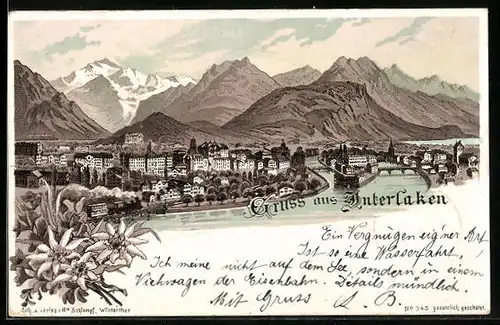 Gruss aus Interlaken
Ein Vergnügen eig'ner Art
Ist so eine Wasserfahrt,
Ich meine nicht auf dem See, sondern in einem
Viehwagen der Eisenbahn. Details mündlich
Mit Gruss A. B.
Lith. & Verlag v. Hrn Schlumpf, Winterthur
No 943 gesetzlich geschützt.